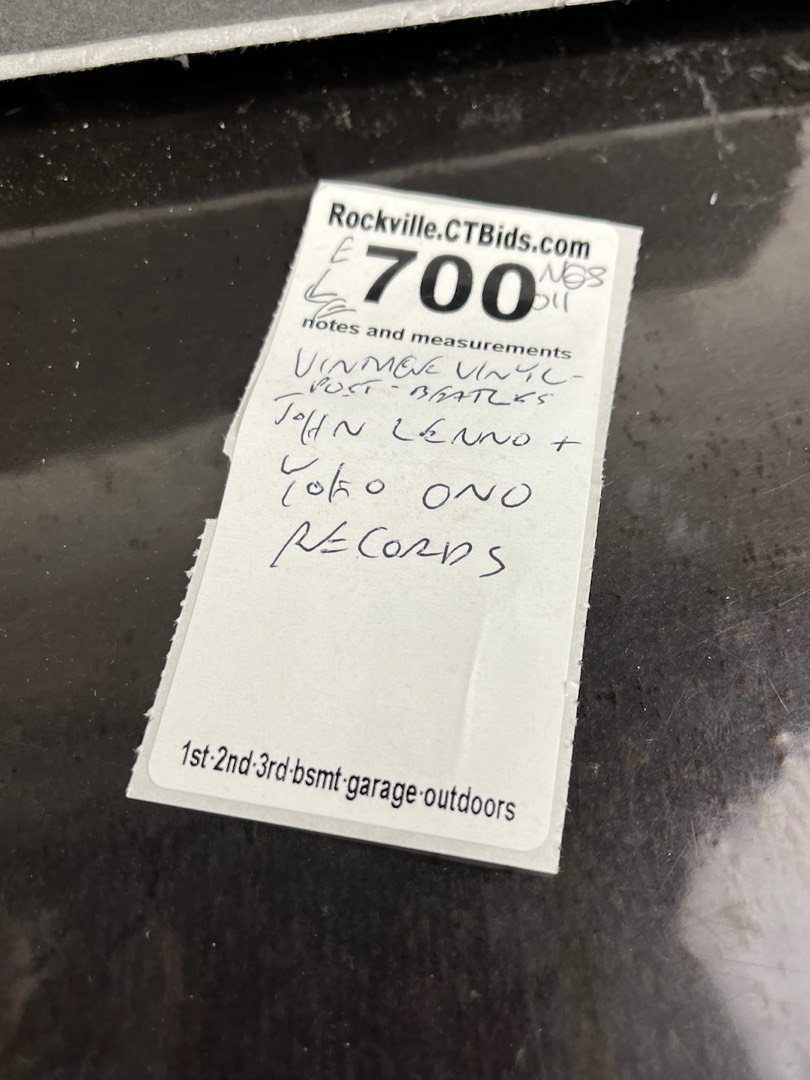 Rockville.CTBids.com
E
L
E
700
NGS
011
notes and measurements
VINTAGE VINYL-
POST-BEATLES
JOHN LENNO +
YOKO ONO
RECORDS
1st·2nd·3rd·bsmt·garage·outdoors